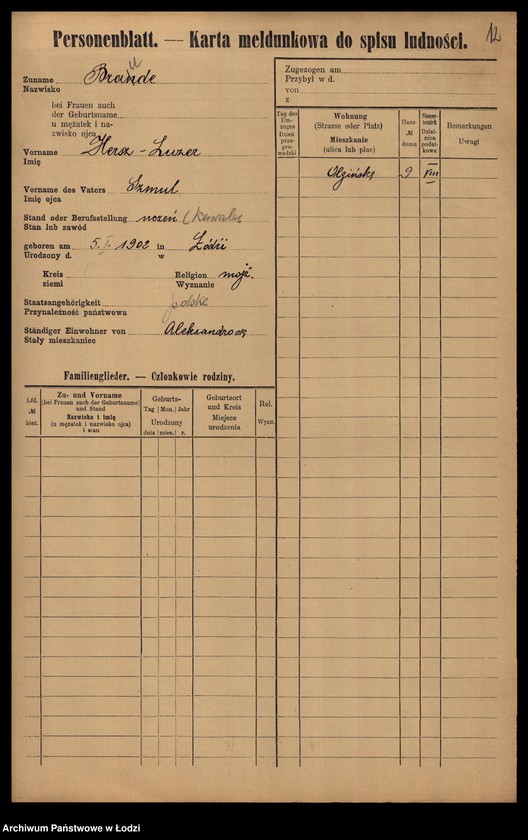 12
Personenblatt. — Karta meldunkowa do spisu ludności.
Zuname
Nazwisko
bei Frauen auch
der Geburtsname
u mężatek i na-
zwisko ojca
Vorname Hersz-Luzer
Imię
Vorname des Vaters Szmul
Imię ojca
Stand oder Berufsstellung uczeń (kawaler
Stan lub zawód
geboren am 5. I. 1902 in Łódźi
Urodzony d. w
Kreis Religion mojż.
ziemi Wyznanie
Staatsangehörigkeit polska
Przynależność państwowa
Ständiger Einwohner von
Stały mieszkaniec
Familienglieder. — Członkowie rodziny.
Lfd. № bież.
Zu- und Vorname
(bei Frauen auch der Geburtsname)
und Stand
Nazwisko i imię
(u mężatek i nazwisko ojca)
i stan
Geburts-
Tag Mon. Jahr
Urodzony
dnia mies. r.
Geburtsort
und Kreis
Miejsce
urodzenia
Rel.
Wyzn.
Zugezogen am
Przybył w d.
von
z
Tag des
Um-
zuges
Dzień
prze-
pro-
wadzki
Wohnung
(Strasse oder Platz)
Mieszkanie
(ulica lub plac)
Haus
№
domu
Steuer-
bezirk
Dziel-
nica
podat-
kowa
Bemerkungen
Uwagi
Olgińska 9 VIII
Archiwum Państwowe w Łodzi